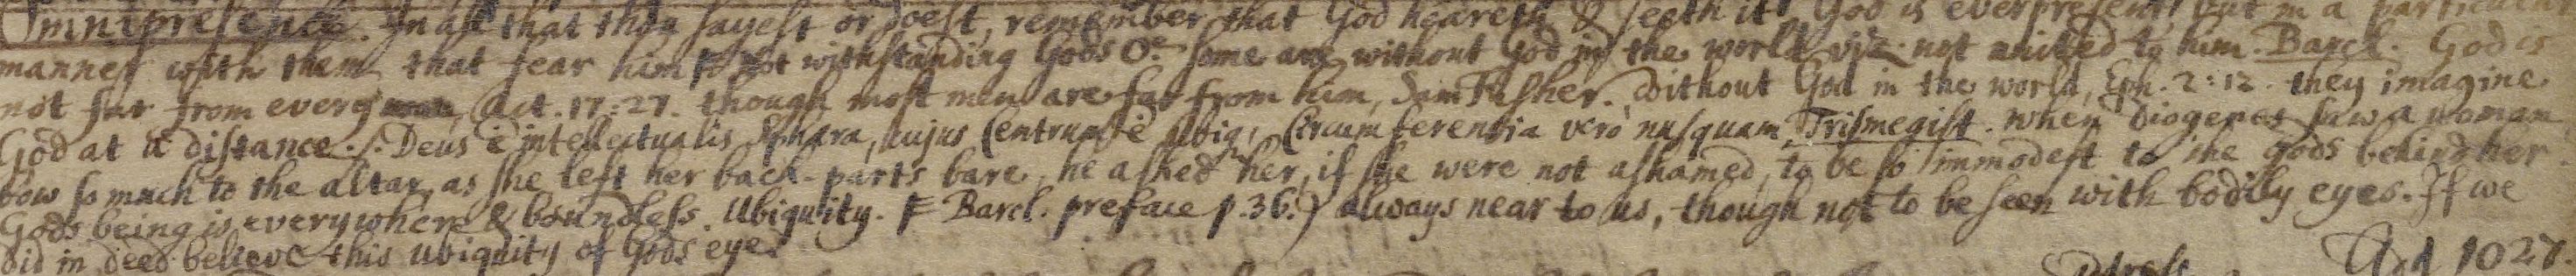 Omnipresence. In all that thou sayest or doest, remember that God heareth & seeth it. God is everpresent, but in a particular
manner with them that fear him. Not withstanding Gods O: some are without God in the world viz. not united to him. Barcl. God is
not far from every, Act. 17:27. though most men are far from him, Sam Fisher. Without God in the world, Eph. 2:12. they imagine
God at a distance. Deus ē intellectualis Sphæra, cujus Centrum ē ubiq;, Circumferentia verò nusquam, Trismegist. When Diogenes saw a woman
bow so much to the altar, as she left her back-parts bare, he asked her, if she were not ashamed, to be so immodest to the gods behind her
Gods being is everywhere & boundless. Ubiquity. F Barcl. preface p.36.) always near to us, though not to be seen with bodily eyes. If we
did in deed believe this Ubiquity of Gods eye
Ad 1027